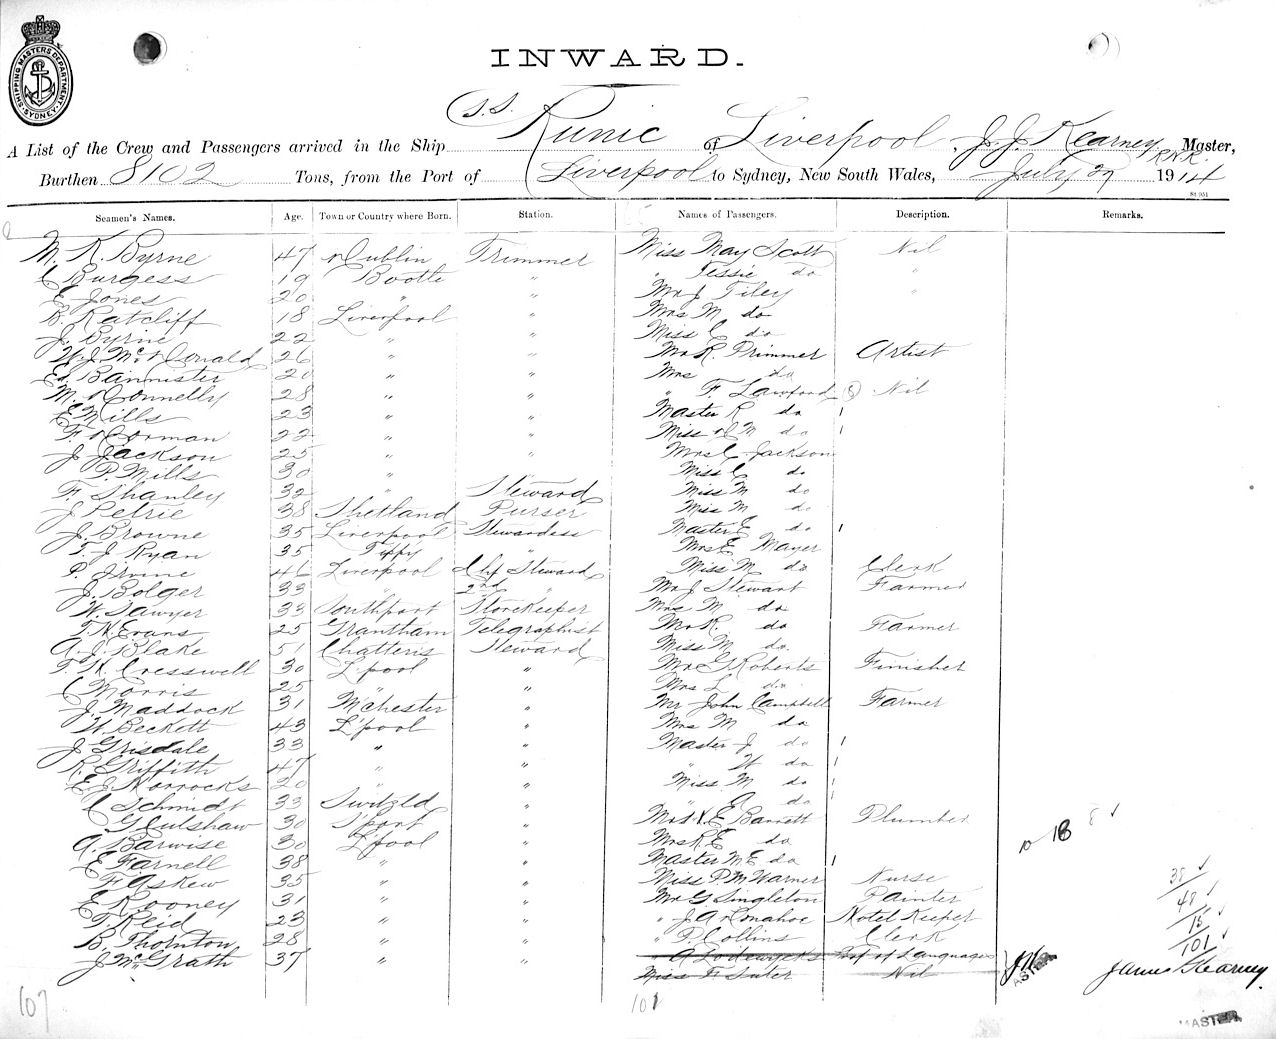 SHIPPING MASTERS DEPARTMENT SYDNEY
INWARD.
A List of the Crew and Passengers arrived in the Ship S.S. Runic of Liverpool, J. J. Kearney R.N.R. Master,
Burthen 8102 Tons, from the Port of Liverpool to Sydney, New South Wales, July 27 1914
Seamen's Names. Age. Town or Country where Born. Station. Names of Passengers. Description. Remarks.
M. K. Byrne 47 Dublin Trimmer Miss May Scott Nil
C Burgess 19 Bootle " " Jessie do "
E Jones 20 " " Mr J Tiley "
B. Ratcliff 18 Liverpool " Mrs M do
J. Byrne 22 " " Miss C do
W. J. McDonald 26 " " Mr R. Primmer Artist
Ed Bannister 20 " " Mrs do
M. Donnelly 28 " " " F. Lawford Nil
E Mills 23 " " Master R do 1
F. Dorman 22 " " Miss D M do 1
J Jackson 25 " " Mrs C Jackson
P. Mills 30 " " Miss C do
F. Shanley 32 " Steward Miss M do
J Petrie 38 Shetland Purser Miss M do
J. Browne 35 Liverpool Stewardess Master E do 1
T. J Ryan 35 Tippy " Mrs E Mayer
P. Irvine 46 Liverpool Chf Steward Miss M do Clerk
J. Bolger 33 " 2nd " Mr J Stewart Farmer
W. Sawyer 33 Southport Storekeeper Mrs M do
T. N. Evans 25 Grantham Telegraphist Mr R. do Farmer
A. J. Blake 51 Chatteris Steward Miss M do
T. H. Cresswell 30 L'pool " Mr G Roberts Finisher
C Morris 25 " " Mrs L do
J. Maddock 31 M'chester " Mr John Campbell Farmer
W. Beckett 43 L'pool " Mrs M do
J Grisdale 33 " " Master J do 1
R. Griffith 47 " " " W do 1
E. J. Horrocks 20 " " Miss M do 1
C Schmidt 33 Switzld " " A do 1
G Culshaw 30 S'port " Mr H. E Barrett Plumber
A. Barwise 30 L'pool " Mrs R E do
E Farnell 38 " " Master M E do 1
F Askew 35 " " Miss P. M Warner Nurse
E Rooney 31 " " Mr G Singleton Painter
T. Reid 23 " " " J. A. Donahoe Hotel Keeper
B. Thornton 28 " " " P. Collins Clerk
J. McGrath 37 " " " A Lodewyckx Prof of Languages
Miss F Suter Nil
10 18 8
38
48
15
101
James Kearney
MASTER
107
101
MASTER